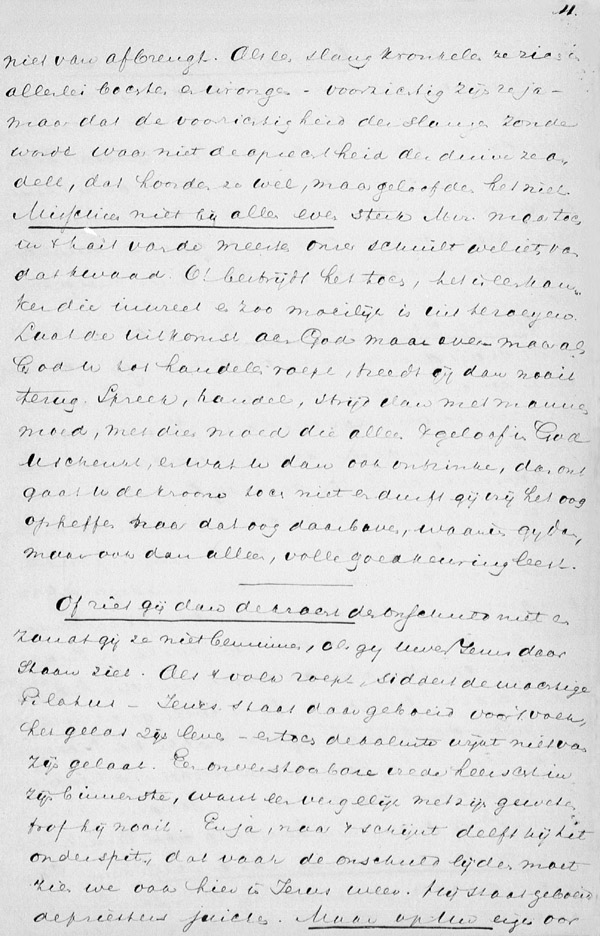 11.
niet van afbrengt. Als een slang kronkelen ze zich in
allerlei bochten en wrongen – voorzichtig zijn ze ja –
maar dat de voorzichtigheid der slangen zonde
wordt waar niet de oprechtheid der duiven ze a
delt, dat hoorden ze wel, maar geloofden het niet.
Misschien niet bij allen even sterk M. maar toch
in 't hart van de meesten onzer schuilt wel iets van
dat kwaad. O! bestrijdt het toch, het is een kan
ker die invreet en zoo moeilijk is uit te roeyen.
Laat de uitkomst aan God maar over maar als
God U tot handelen roept, treedt gij dan nooit
terug. Spreek, handel, strijd dan met mannen
moed, met dien moed die alleen 't geloof in God
U schenkt, en wat U dan ook ontzinke, dan ont
gaat U de kroon toch niet en durft gij vrij het oog
opheffen naar dat oog daarboven, waarin gij dan,
maar ook dan alleen, volle goedkeuring leest.
Of ziet gij dan de kracht der onschuld niet en
zoudt gij ze niet beminnen, als gij Uwen Jezus daar
staan ziet. Als 't volk roept, siddert de machtige
Pilatus – Jezus staat daar geboeid voor 't volk,
het geldt zijn leven – en toch de kalmte wijkt niet van
zijn gelaat. Een onverstoorbare vrede heerscht in
zijn binnenste, want een vergelijk met zijn geweten
trof hij nooit. En ja, naar 't schijnt delft hij het
onderspit, dat vaak de onschuld lijden moet
zien we ook hier in Jezus weer. Hij staat geboeid
de priesters juichen. Maar op Uw eigen oor